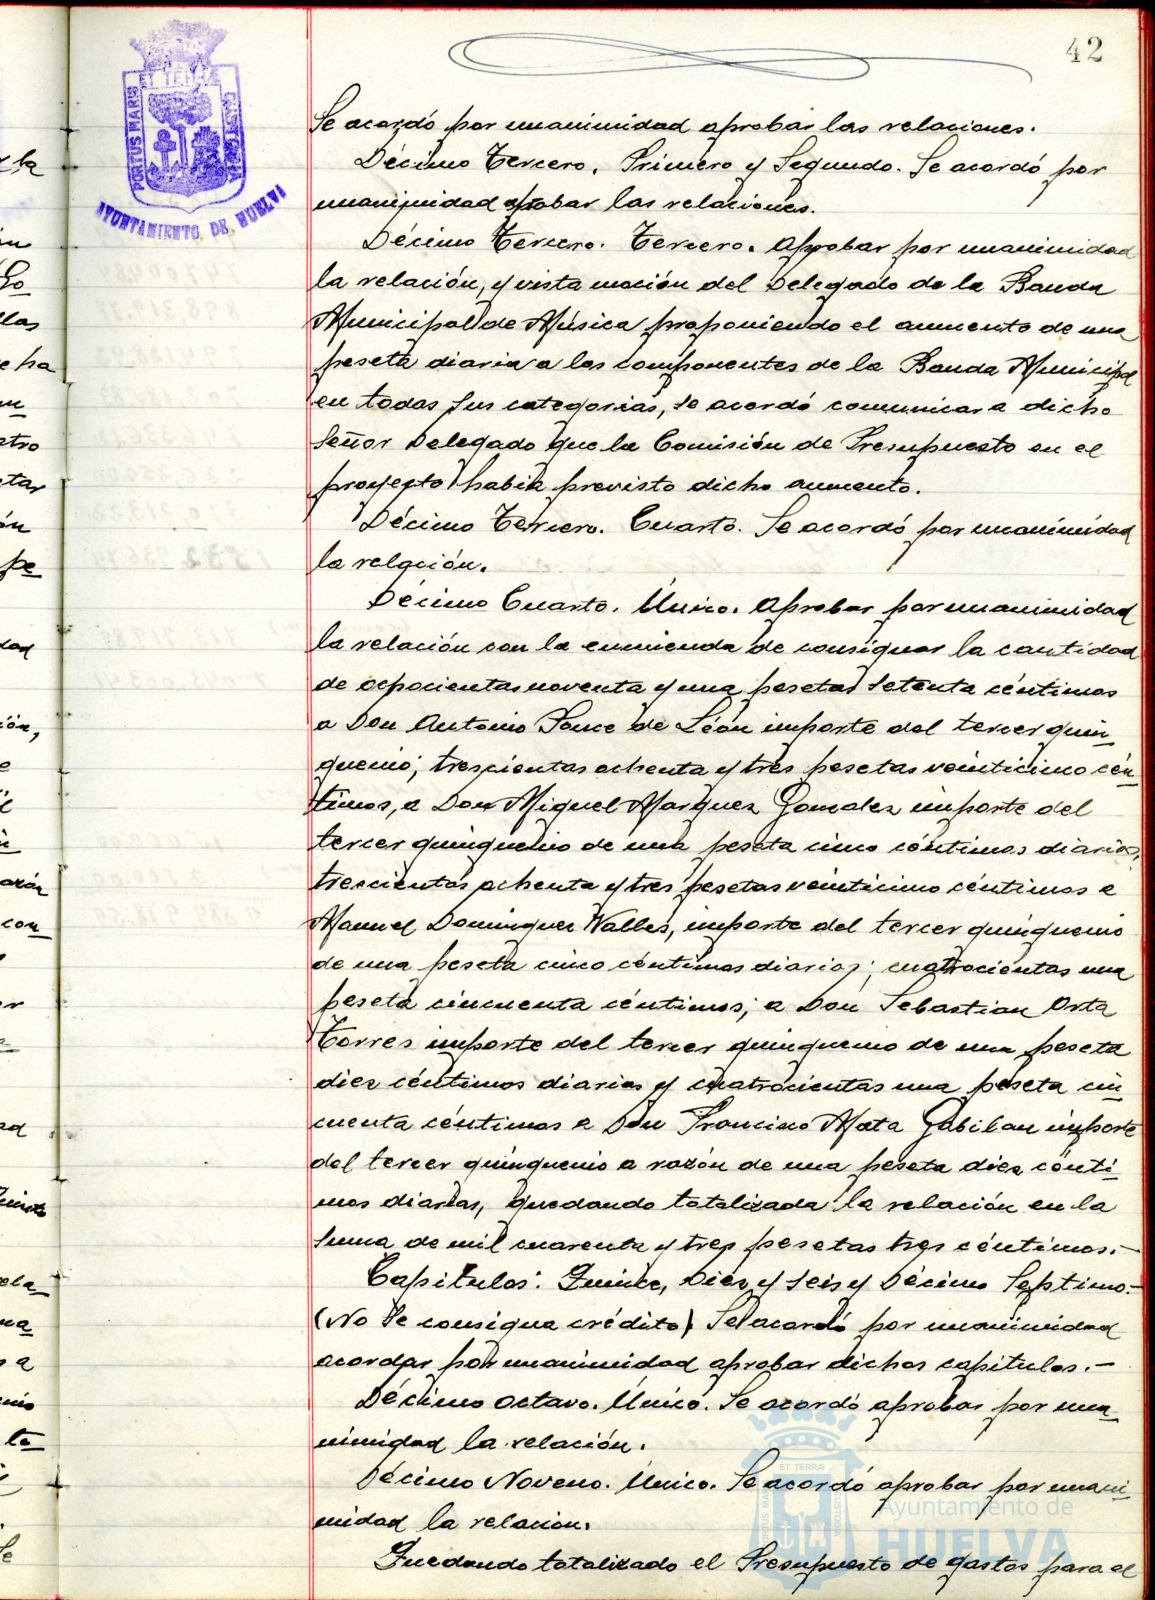 42
PORTUS MARIS ET TERRÆ CUSTODIA
AYUNTAMIENTO DE HUELVA
Se acordó por unanimidad aprobar las relaciones.
Décimo Tercero. Primero y Segundo. Se acordó por
unanimidad aprobar las relaciones.
Décimo Tercero. Tercero. Aprobar por unanimidad
la relación, y vista moción del Delegado de la Banda
Municipal de Música proponiendo el aumento de una
peseta diaria a los componentes de la Banda Municipal
en todas sus categorías, se acordó comunicar a dicho
Señor Delegado que la Comisión de Presupuesto en el
proyecto había previsto dicho aumento.
Décimo Tercero. Cuarto. Se acordó por unanimidad
la relación.
Décimo Cuarto. Único. Aprobar por unanimidad
la relación con la enmienda de consignar la cantidad
de ochocientas noventa y una pesetas setenta céntimos
a Don Antonio Ponce de León importe del tercer quin-
quenio; trescientas ochenta y tres pesetas veinticinco cén-
timos, a Don Miguel Marquez Gonzalez importe del
tercer quinquenio de una peseta cinco céntimos diarios,
trescientas ochenta y tres pesetas veinticinco céntimos a
Manuel Dominguez Valles, importe del tercer quinquenio
de una peseta cinco céntimos diarios; cuatrocientas una
peseta cincuenta céntimos; a Don Sebastian Orta
Torres importe del tercer quinquenio de una peseta
diez céntimos diarios y cuatrocientas una peseta cin-
cuenta céntimos a Don Francisco Mata Gabilan importe
del tercer quinquenio a razón de una peseta diez cénti-
mos diarias, quedando totalizada la relación en la
suma de mil cuarenta y tres pesetas tres céntimos.-
Capítulos: Quince, Diez y Seis y Décimo Septimo.-
(No se consigna crédito) Se acordó por unanimidad
acordar por unanimidad aprobar dichos capitulos.-
Décimo Octavo. Único. Se acordó aprobar por una-
nimidad la relación.
Décimo Noveno. Único. Se acordó aprobar por unani-
midad la relación.
Quedando totalizado el Presupuesto de gastos para el
Ayuntamiento de
HUELVA